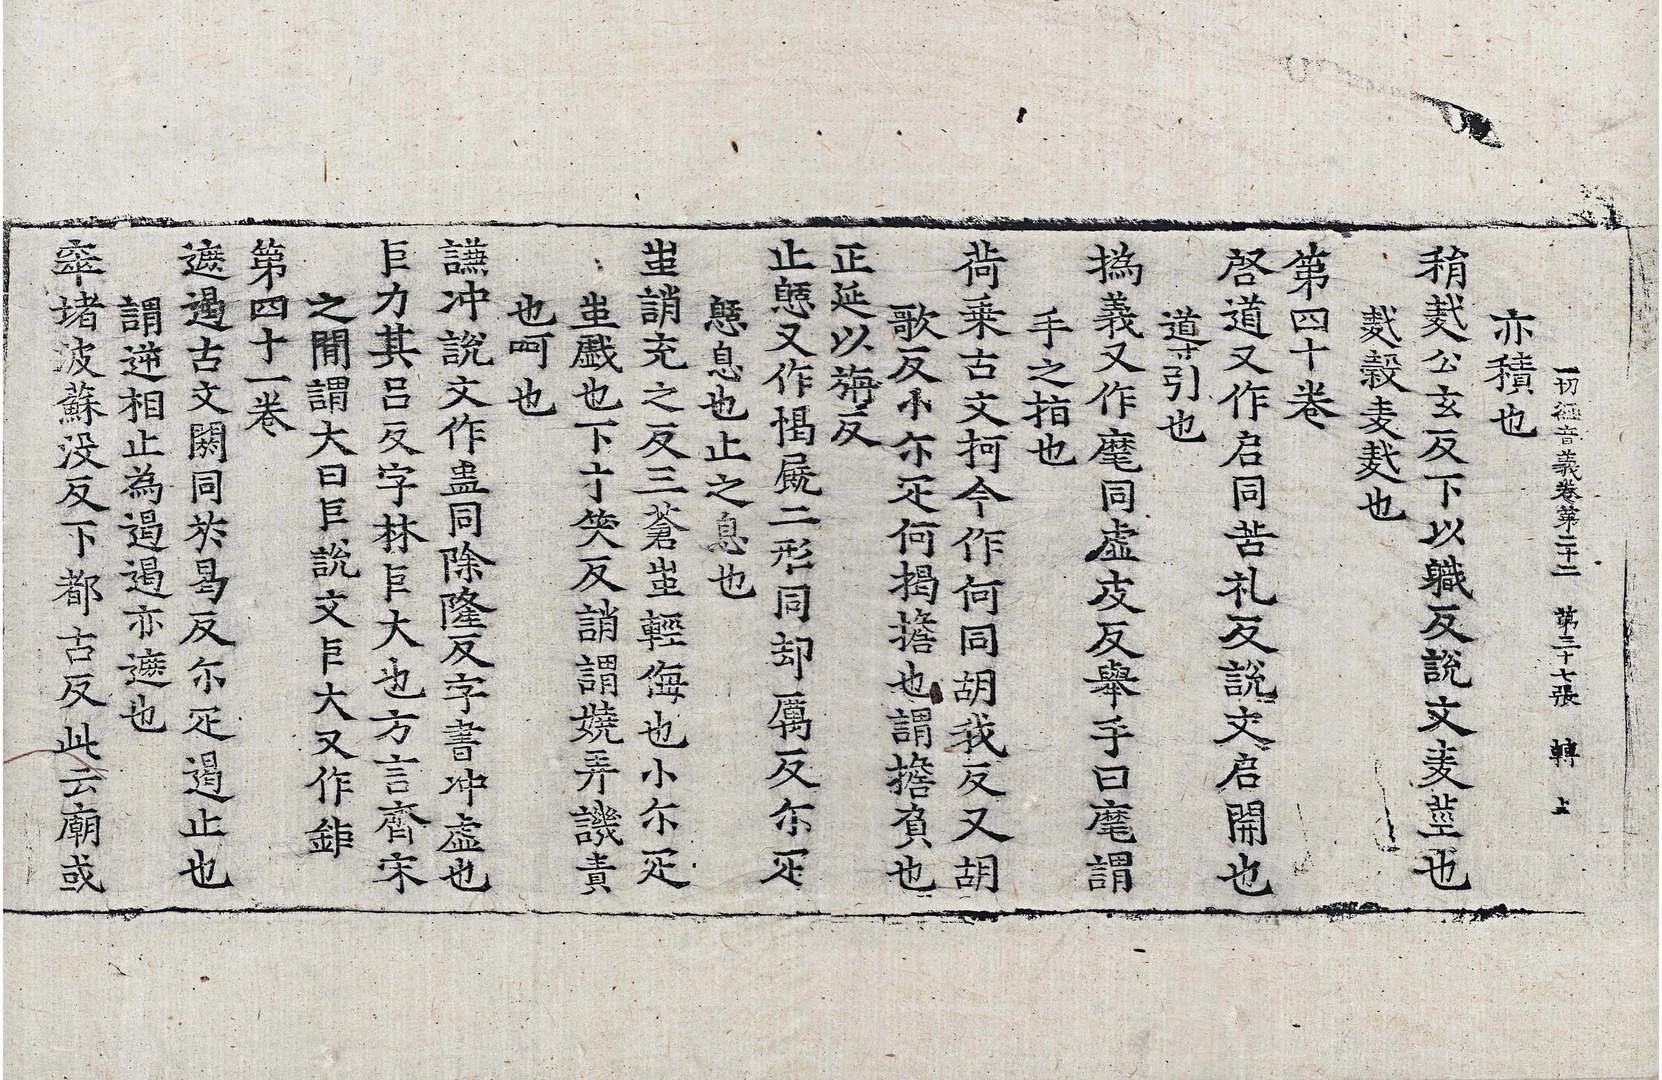 一切經音義卷第二十二　第三十七張　轉　上
亦積也
䅌䴬公玄反下以職反說文麦莖也
䴬㲄麦䴬也
第四十卷
啓道又作启同苦礼反說文启開也
道引也
撝義又作麾同虛皮反舉手曰麾謂
手之指也
荷乗古文柯今作何同胡我反又胡
歌反小尒疋何揭擔也謂擔負也
正延以㫋反
止愒又作揭𢉖二形同却厲反尒疋
愒息也止之息也
蚩誚充之反三蒼蚩輕侮也小尒疋
蚩戲也下才笑反誚謂嬈弄譏責
也呵也
謙冲說文作盅同除隆反字書冲虛也
巨力其呂反字林巨大也方言齊宋
之閒謂大曰巨說文巨大又作鉅
第四十一卷
遮遏古文閼同於曷反尒疋遏止也
謂逆相止為遏遏亦遮也
窣堵波蘇沒反下都古反此云廟或